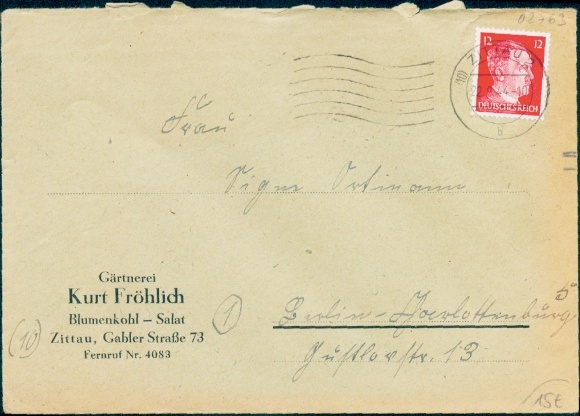 02763
12 12
ZITTAU
(10)
DEUTSCHES REICH
b
Frau
Signe Ortmann
Gärtnerei
Kurt Fröhlich
Blumenkohl – Salat
Zittau, Gabler Straße 73
Fernruf Nr. 4083
(10)
1
Berlin-Charlottenburg 5
Gustlovstr. 13
15E